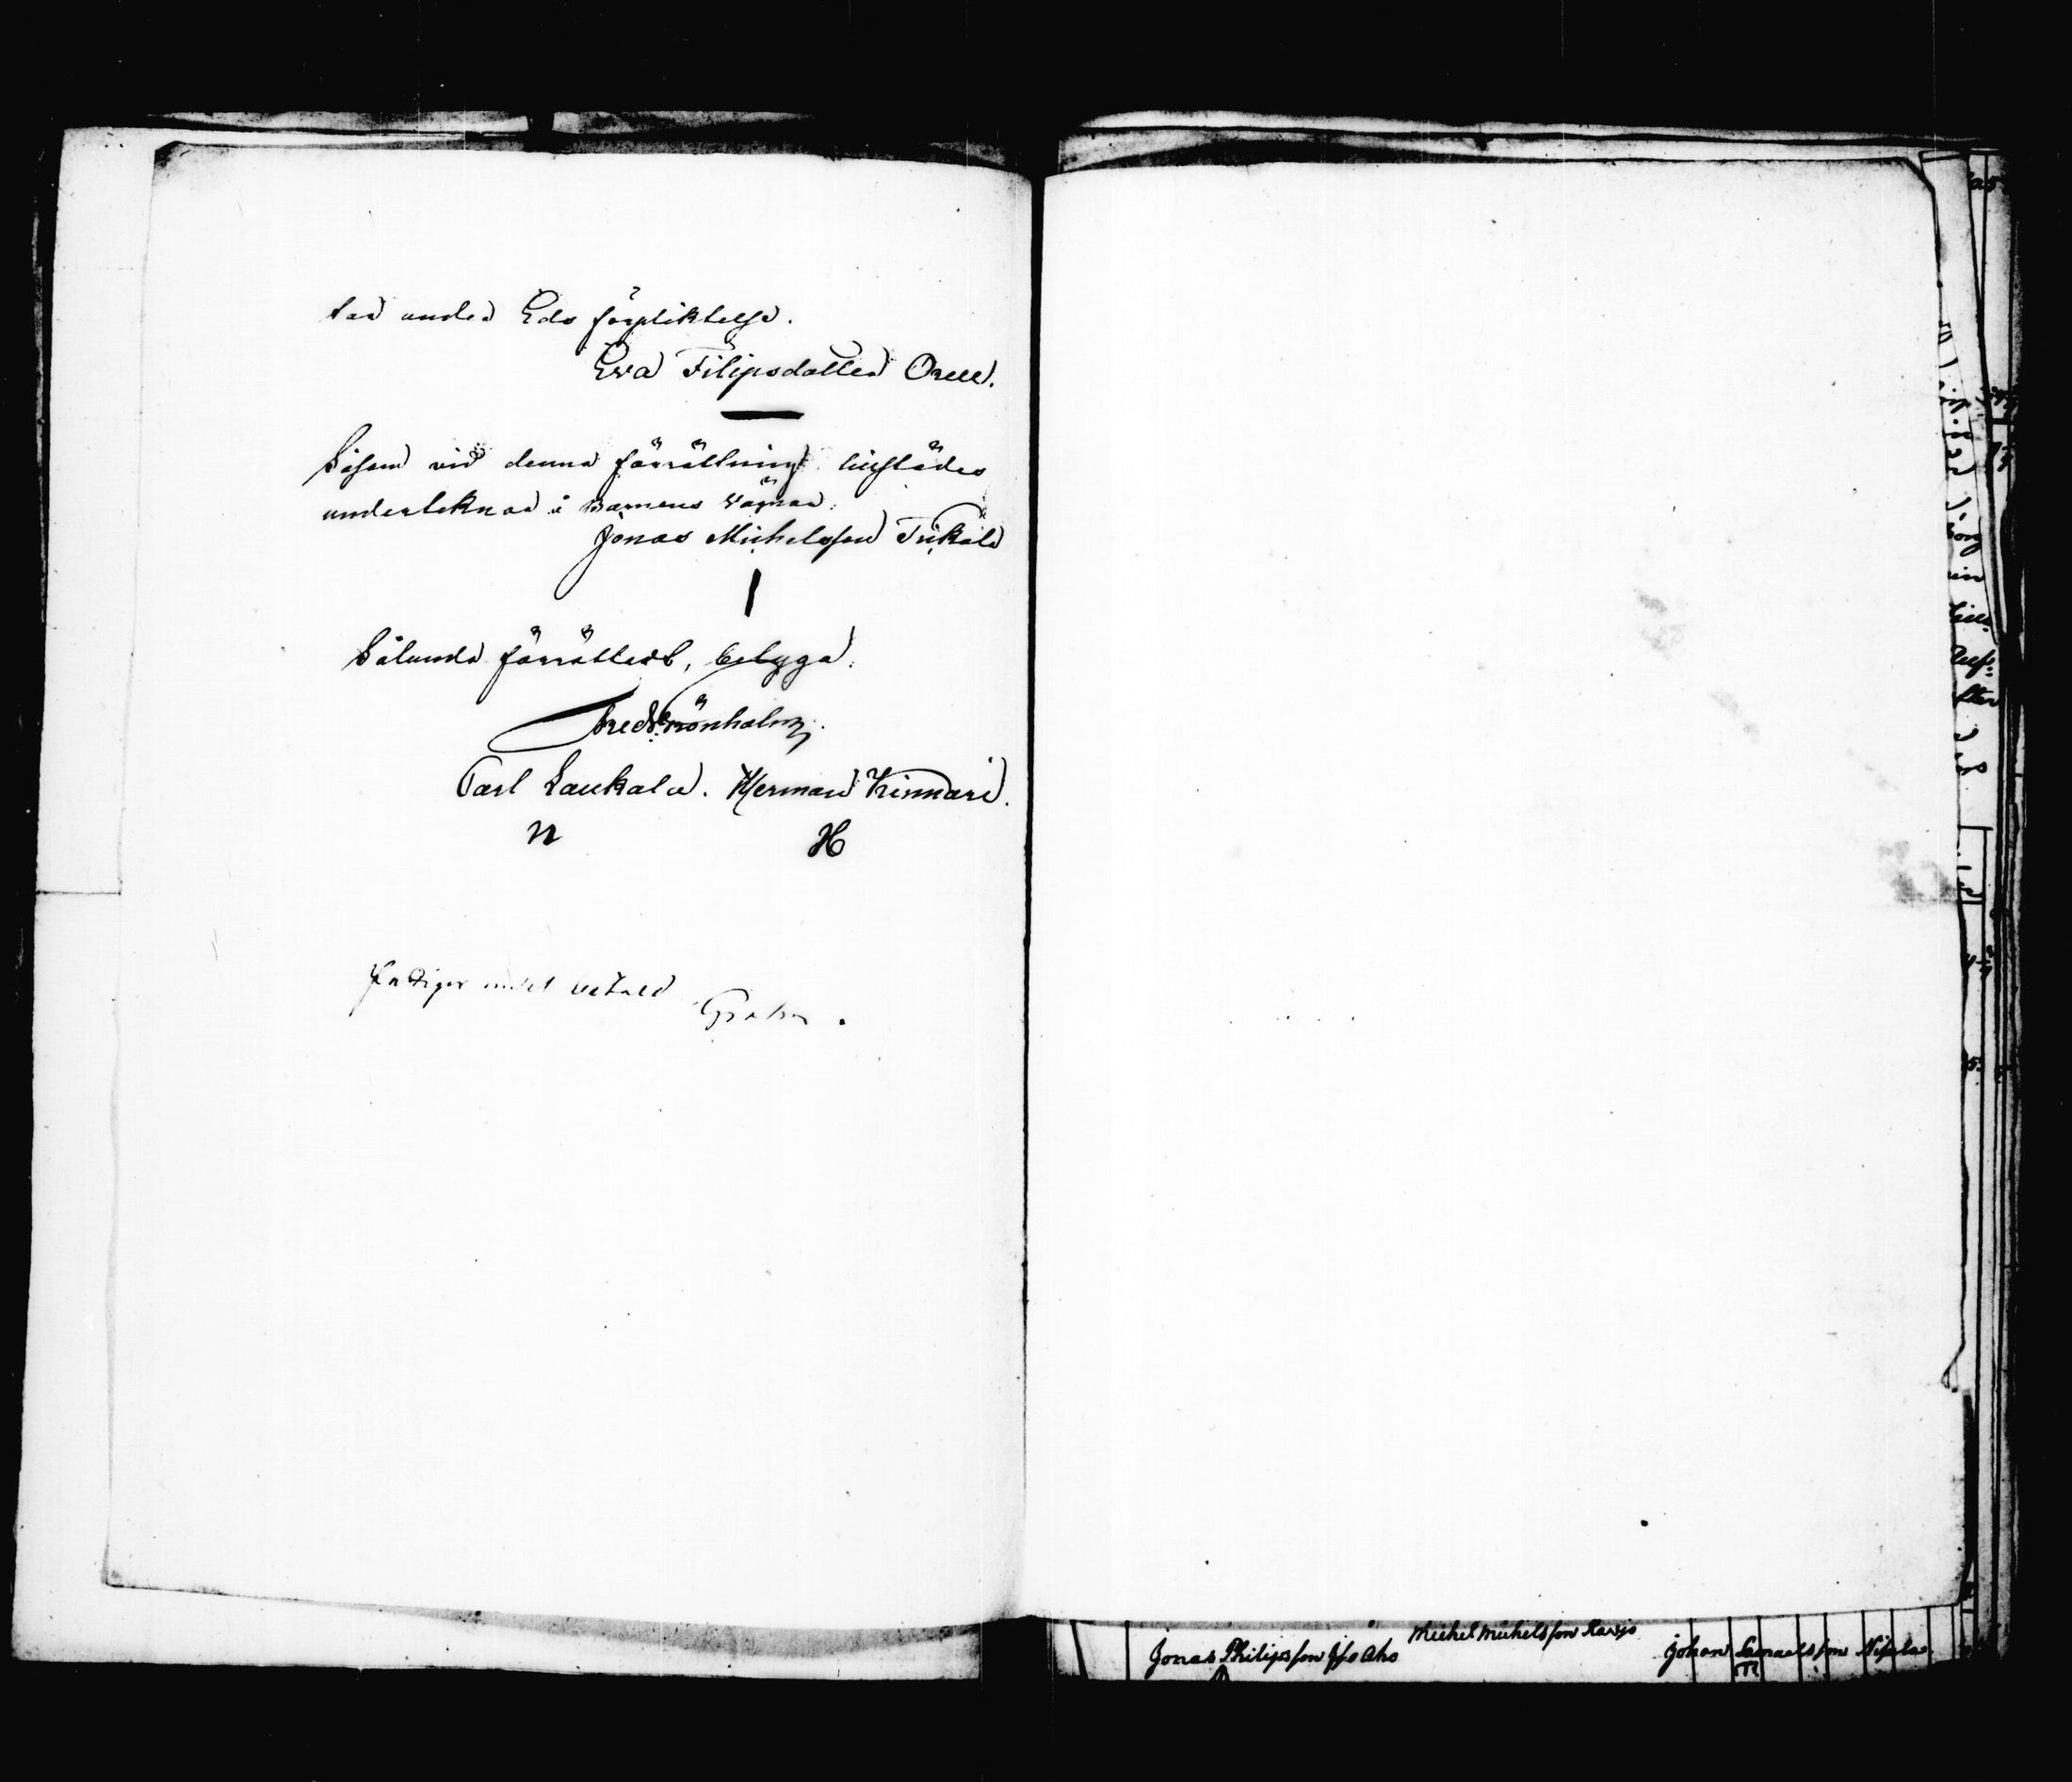 tar under Eds förpliktelse.
Eva Filipsdotter Orell.
Såsom vid denna förrättning tillstädes
undertecknar i barnens vägnar.
Jonas Michelsson Trikala
Sålunda förrättadt, betyga.
Fred Grönholm.
Carl Laukala. Herman Kinnari.
n H
fattiges andel betald
Jonas Philipsson Iso Aho
Michel Michelsson Karjo
Johan Samuelsson Nissla